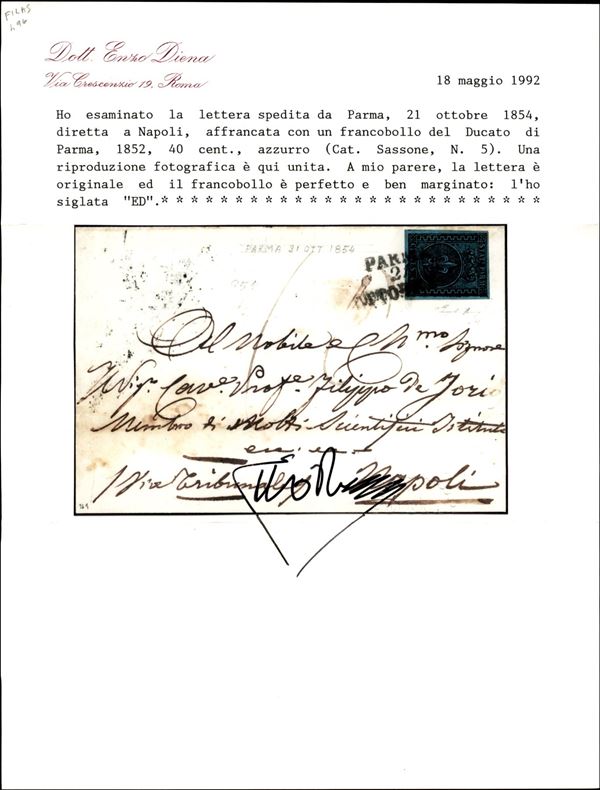 FILAS
Dott. Enzo Diena
Via Crescenzio 19, Roma
18 maggio 1992
Ho esaminato la lettera spedita da Parma, 21 ottobre 1854,
diretta a Napoli, affrancata con un francobollo del Ducato di
Parma, 1852, 40 cent., azzurro (Cat. Sassone, N. 5). Una
riproduzione fotografica è qui unita. A mio parere, la lettera è
originale ed il francobollo è perfetto e ben marginato: l'ho
siglata "ED".* * * * * * * * * * * * * * * * * * * * * * * * * *
PARMA 21 OTT 1854
Al Nobile e Ch.mo Signore
Il Sig.r Cav.e Prof.e Filippo De Jorio
Membro di Molti Scientifici Istituti
Via Tribunali Napoli